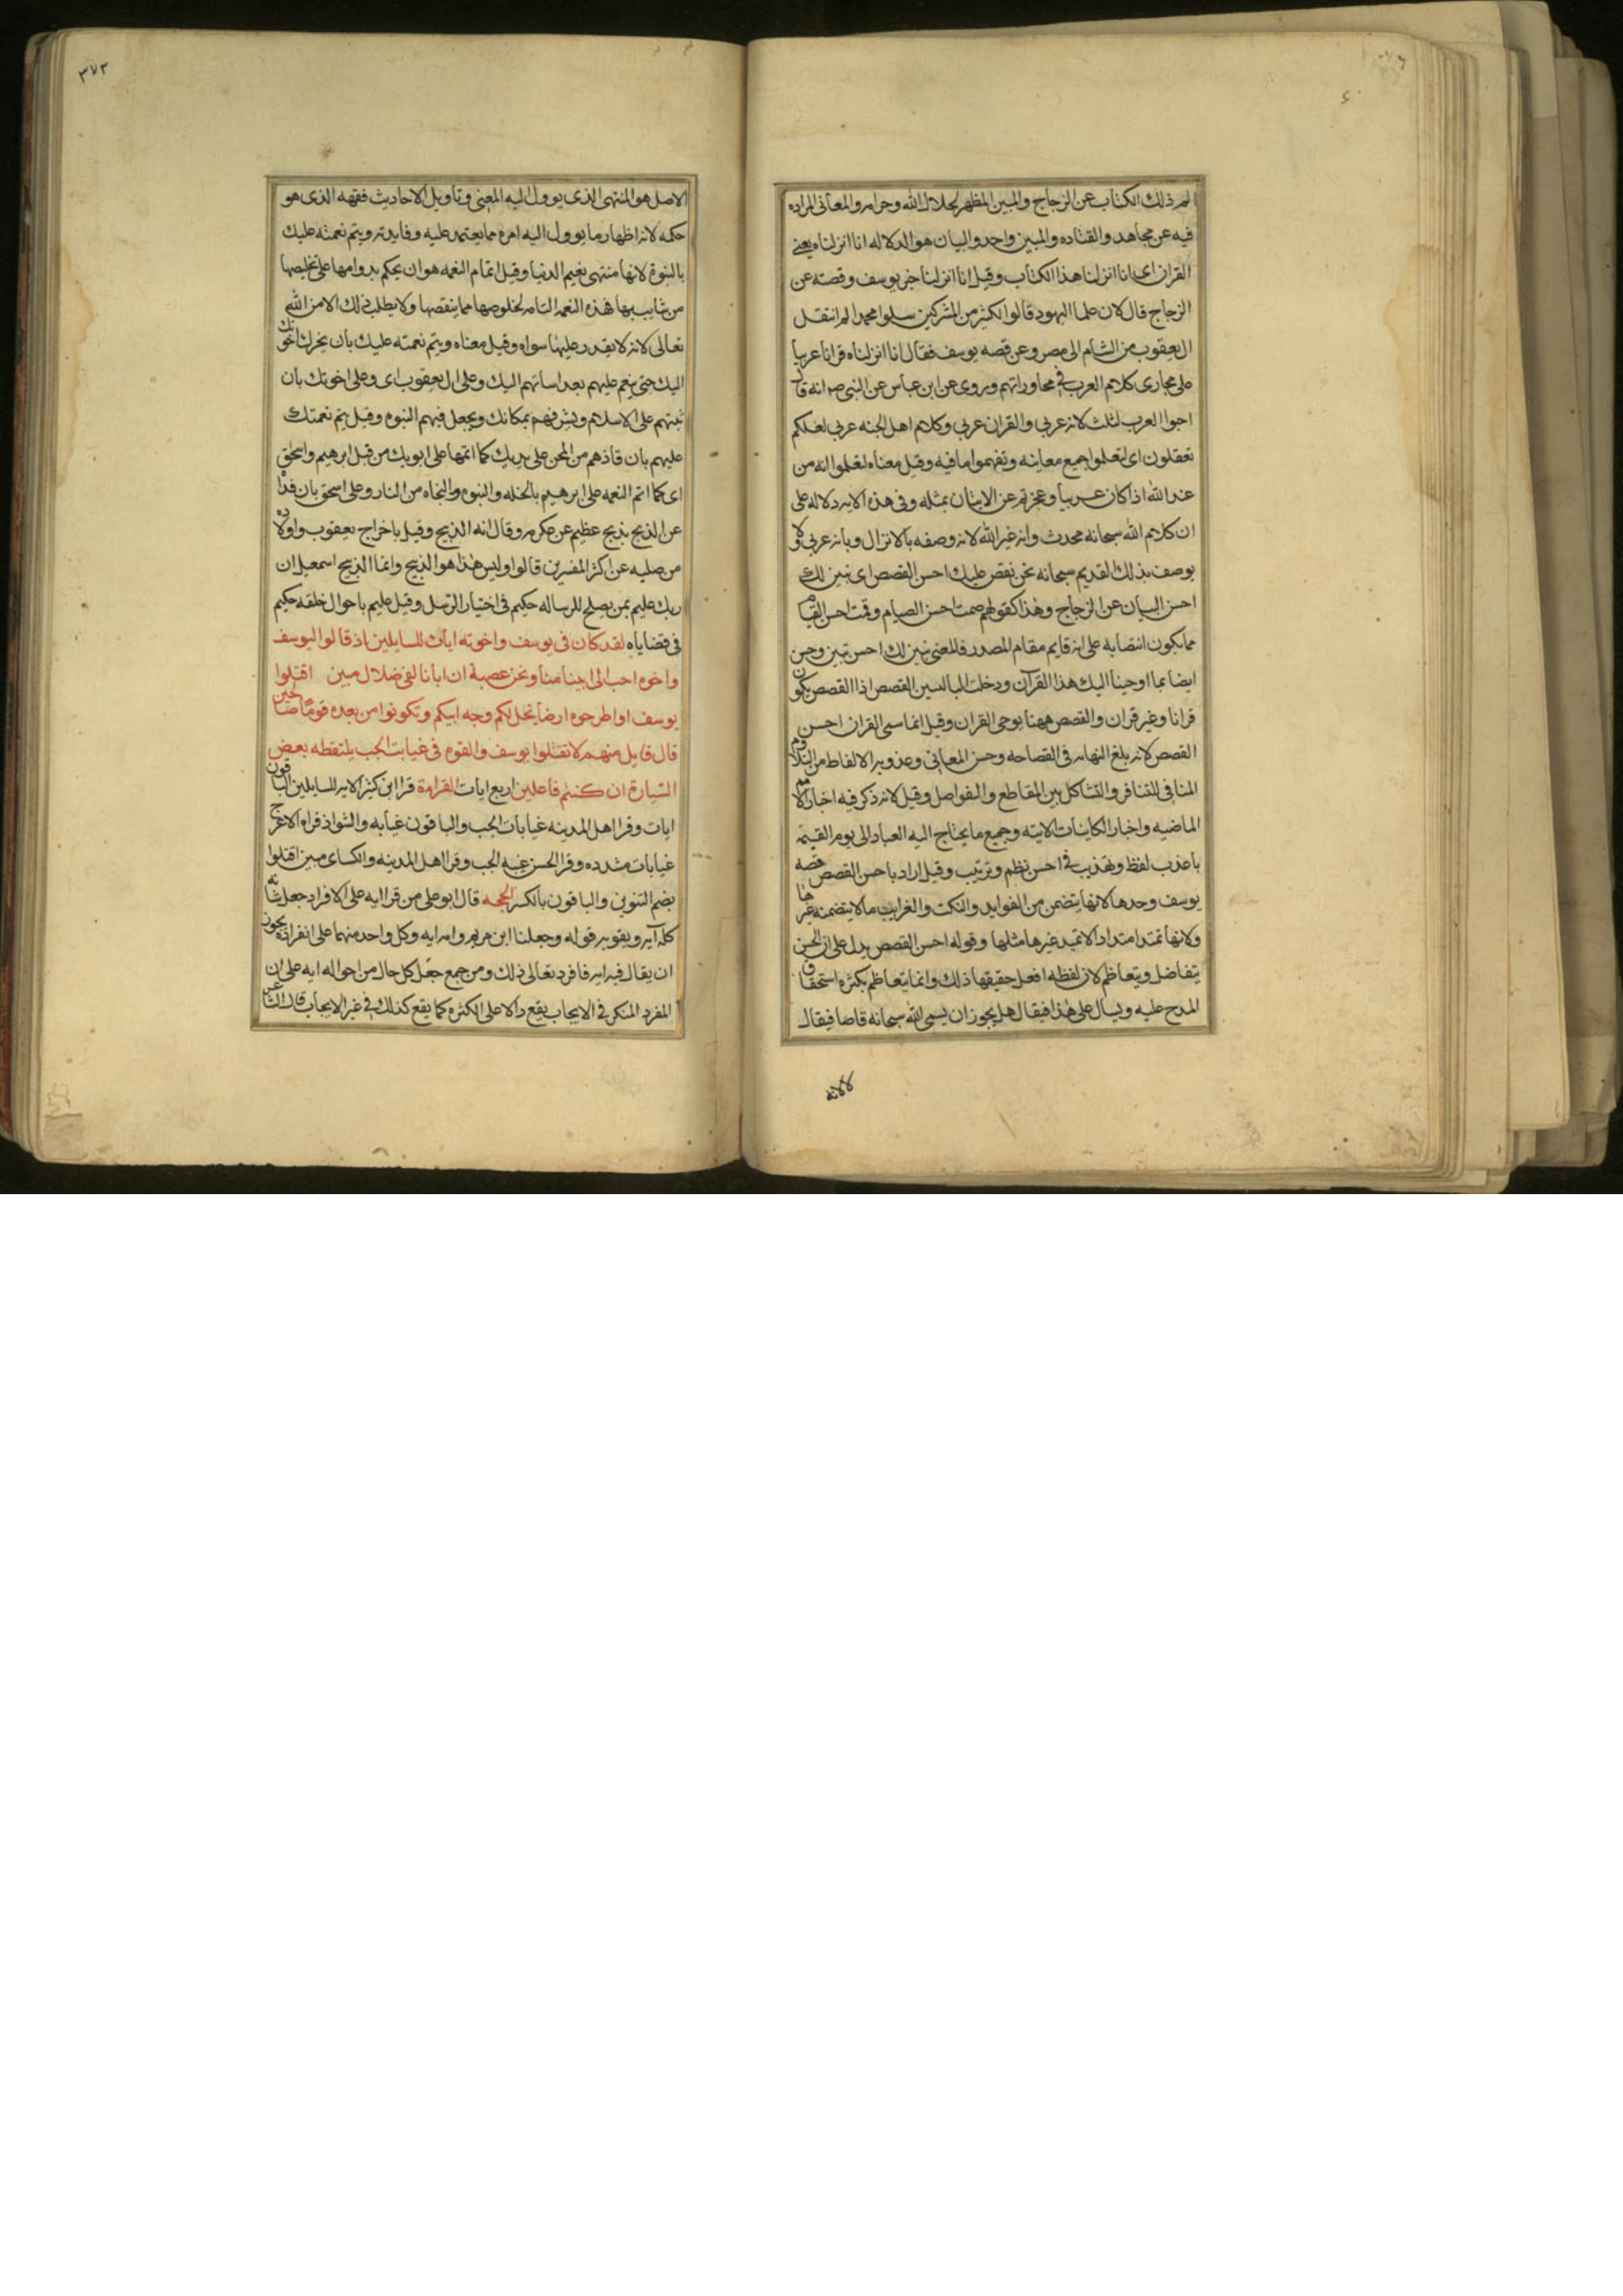 الم ذلك الكتاب عن الزجاج والمبين المظهر لحلال الله وحرامه والمعانى المراده
فيه عن مجاهد والقتاده والمبين واحد والبيان هو الدلاله انا انزلناه يعنى
القران اى انا انزلنا هذا الكتاب وقيل انا انزلنا خبر يوسف وقصته عن
الزجاج قال لان علما اليهود قالوا لكثير من المشركين سلوا محمدا لم انتقل
ال يعقوب من الشام الى مصر وعن قصه يوسف فقال انا انزلناه قرانا عربيا
على مجارى كلام العرب فى محاوراتهم وروى عن ابن عباس عن النبى ص انه قال
احبوا العرب لثلث لانه عربى والقران عربى وكلام اهل الجنه عربى لعلكم
تعقلون اى لتعلموا جميع معانيه وتفهموا ما فيه وقيل معناه لتعلموا انه من
عند الله اذا كان عربيا وعجزتم عن الاتيان بمثله وفى هذه الايه دلاله على
ان كلام الله سبحانه محدث وانه غير الله لانه وصفه بالانزال وبانه عربى ولا
يوصف بذلك القديم سبحانه نحن نقص عليك احسن القصص اى نبين لك
احسن البيان عن الزجاج وهذا كقولهم صمت احسن الصيام وقمت احسن القيام
مما يكون انتصابه على انه قايم مقام المصدر فالمعنى نبين لك احسن تبين وحسن
ايضا بما اوحينا اليك هذا القرآن ودخلت البا لتبين القصص اذا القصص يكون
قرانا وغير قران والقصص ههنا بوحى القران وقيل انما سمى القران احسن
القصص لانه بلغ النهايه فى الفصاحه وحسن المعانى وعذوبه الالفاظ من التلاوم
المنافى للتنافر والتشاكل بين المقاطع والفواصل وقيل لانه ذكر فيه اخبار الامم
الماضيه واخبار الكاينات الاتيه وجميع ما يحتاج اليه العباد الى يوم القيمه
باعذب لفظ وتهذيب فى احسن نظم وترتيب وقيل اراد باحسن القصص قصه
يوسف وحدها لانها يتضمن من الفوايد والنكت والغرايب ما لا يتضمنه غيرها
ولانها تمتد امتدادا لا تمتد غيرها مثلها وقوله احسن القصص يدل على ان الحسن
يتفاضل ويتعاظم لان لفظه افعل حقيقتها ذلك وانما يتعاظم بكثره استحقاق
المدح عليه ويسال على هذا فيقال هل يجوز ان يسمى الله سبحانه قاصا فيقال
لا لانه
٣٧٣
الاصل هو المنتهى الذى يوول اليه المعنى وتاويل الاحاديث فقهه الذى هو
حكمه لانه اظهار ما يوول اليه امره مما يعتمد عليه وفايدته ويتم نعمته عليك
بالنبوة لانها منتهى نعيم الدنيا وقيل اتمام النعمه هو ان يحكم بدوامها على تخليصها
من شايب بها فهذه النعمه التامه لخلوصها مما ينقصها ولا يطلب ذلك الا من الله
تعالى لانه لا يقدر عليها سواه وقيل معناه ويتم نعمته عليك بان يخرك اخوتك
اليك حتى ينعم عليهم بعد اساتهم اليك وعلى ال يعقوب اى وعلى اخوتك بان
ثبتهم على الاسلام ويشرفهم بمكانك ويجعل فيهم النبوه وقيل يتم نعمتك
عليهم بان قاذهم من المحن على يديك كما اتمها على ابويك من قبل ابرهيم واسحق
اى كما اتم النعمه على ابرهيم بالخله والنبوه والنجاه من النار وعلى اسحق بان فداه
عن الذبح بذبح عظيم عن عكرمه وقال انه الذبيح وقيل باخراج يعقوب واولاده
من صلبه عن اكثر المفسرين قالوا وليس هذا هو الذبيح وانما الذبيح اسمعيل ان
ربك عليم بمن يصلح للرساله حكيم فى اختيار الرسل وقيل عليم باحوال خلقه حكيم
فى قضاياه لقد كان فى يوسف واخوته ايات للسايلين اذ قالوا ليوسف
واخوه احب الى ابينا منا ونحن عصبة ان ابانا لفى ضلال مبين اقتلوا
يوسف او اطرحوه ارضا يخل لكم وجه ابيكم وتكونوا من بعده قوما صالحين
قال قايل منهم لا تقتلوا يوسف والقوه فى غيابت الجب يلتقطه بعض
السيارة ان كنتم فاعلين اربع ايات القراءة قرا ابن كثير الايه للسايلين الباقون
ايات وقرا اهل المدينه غيابات الجب والباقون غيابه والشواذ قراه الاعرج
غيابات مشدده وقرا الحسن غيبه الجب وقرا اهل المدينه والكساى مبين اقتلوا
بضم التنوين والباقون بالكسر الحجه قال ابو على من قرا ايه على الافراد جعل شانه
كله آيه ويقويه قوله وجعلنا ابن مريم وامه ايه وكل واحد منهما على انفراده يجوز
ان يقال فيه ايه فافرد تعالى ذلك ومن جمع جعل كل حال من احواله ايه على ان
المفرد المنكر فى الايجاب يقع دالا على الكثره كما يقع كذلك فى غير الايجاب قال الشاعر